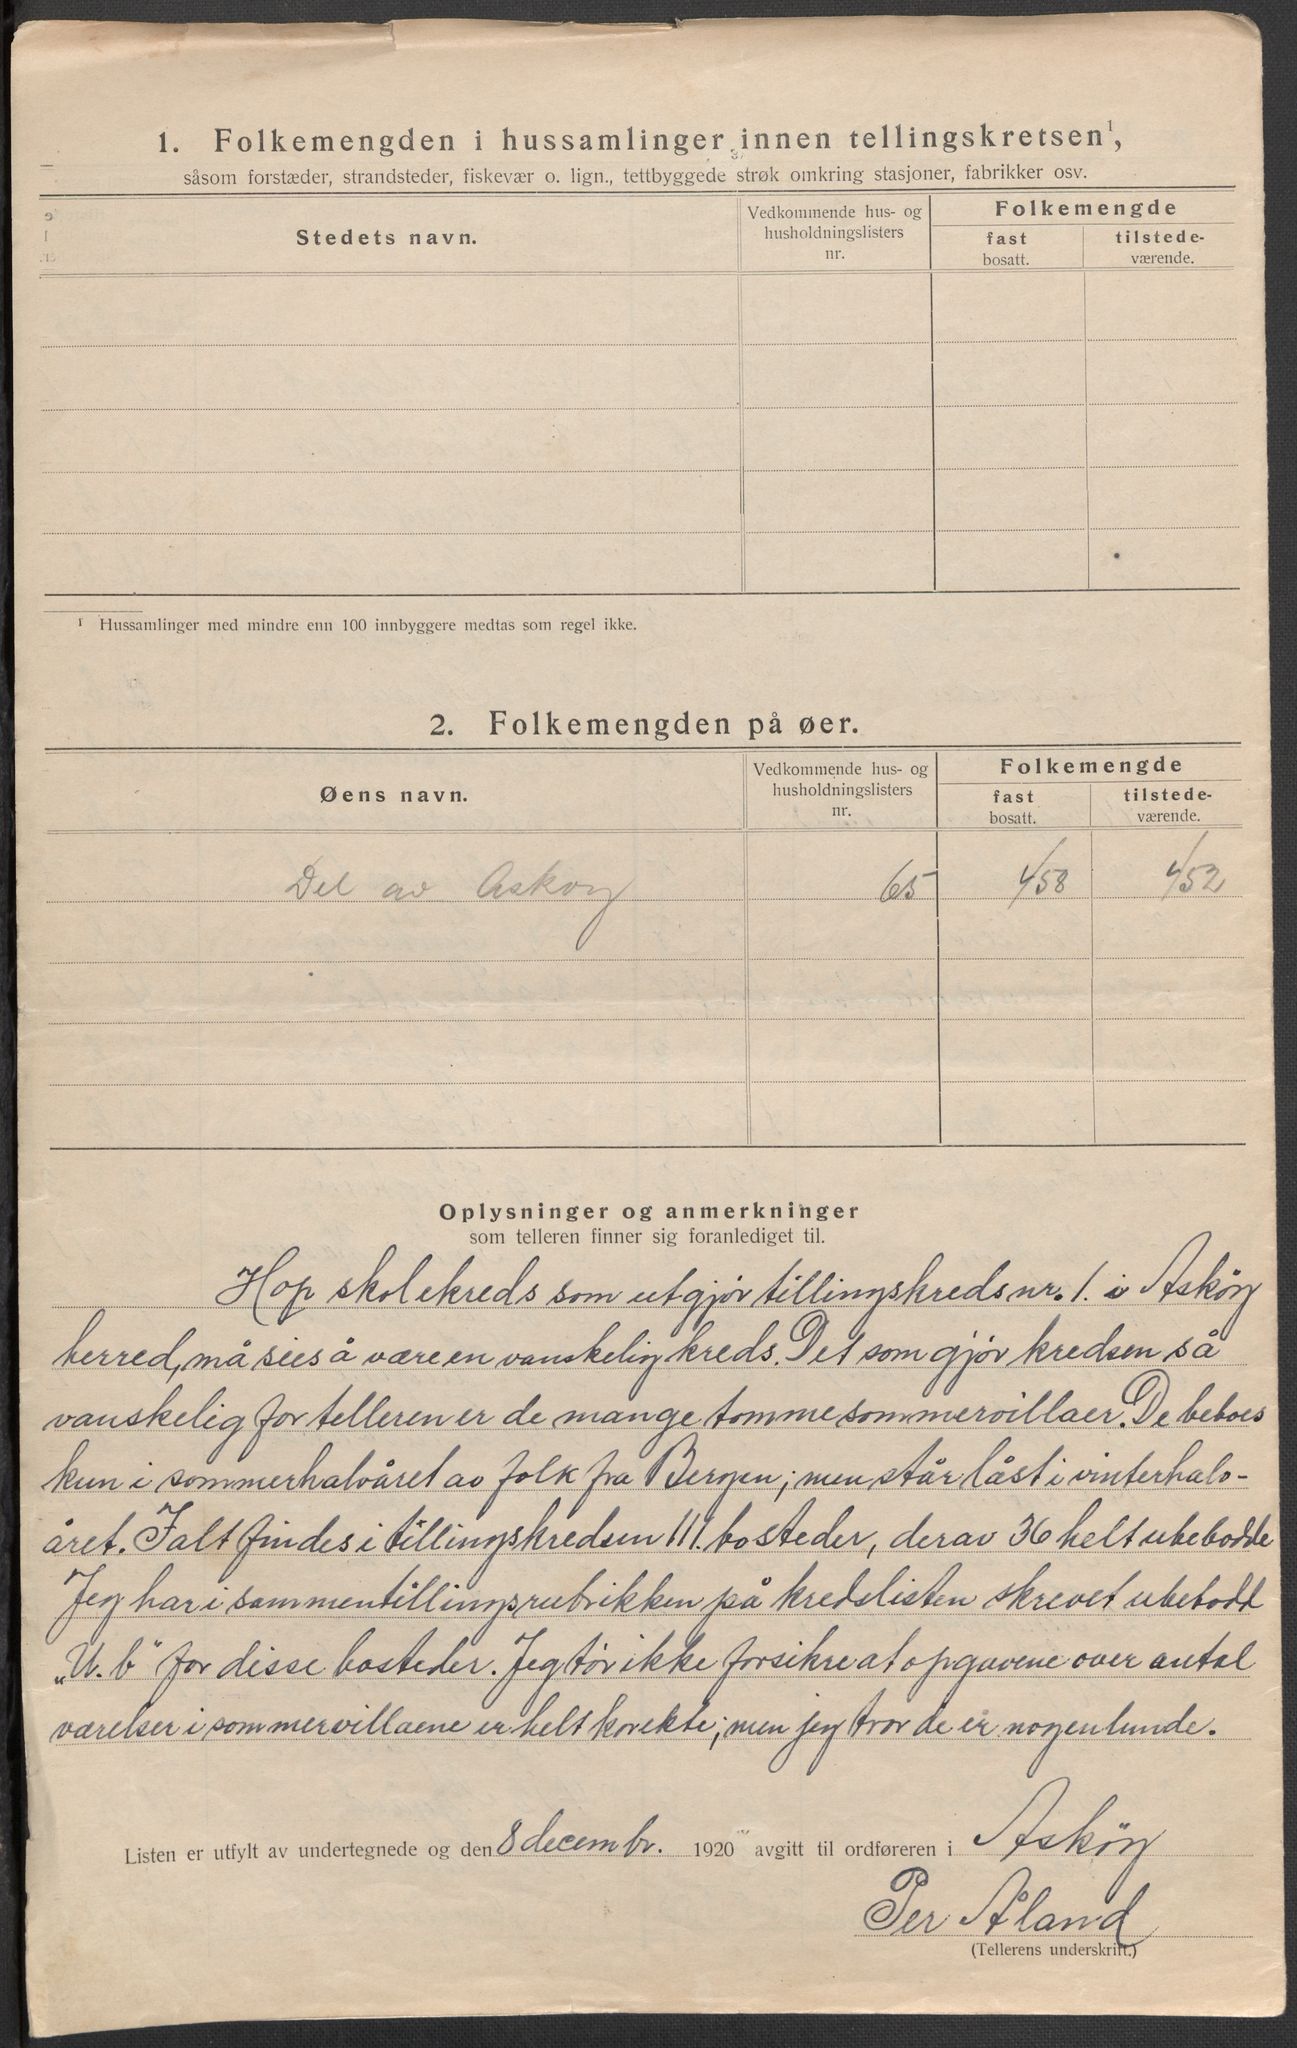 1. Folkemengden i hussamlinger innen tellingskretsen¹,
såsom forstæder, strandsteder, fiskevær o. lign., tettbyggede strøk omkring stasjoner, fabrikker osv.
Stedets navn.
Vedkommende hus- og
husholdningslisters
nr.
Folkemengde
fast
bosatt.
tilstede-
værende.
¹ Hussamlinger med mindre enn 100 innbyggere medtas som regel ikke.
2. Folkemengden på øer.
Øens navn.
Vedkommende hus- og
husholdningslisters
nr.
Folkemengde
fast
bosatt.
tilstede-
værende.
Del av Askøy 65 458 452
Oplysninger og anmerkninger
som telleren finner sig foranlediget til.
Hop skolekreds som utgjør tillingskreds nr. 1. i Asköy
herred, må sies å være en vanskelig kreds. Det som gjør kredsen så
vanskelig for telleren er de mange tomme sommervillaer. De beboes
kun i sommerhalvåret av folk fra Bergen; men står låst i vinterhalv-
året. Ialt findes i tillingskredsen 111 bosteder, derav 36 helt ubebodde
Jeg har i sammentillingsrubrikken på kredslisten skrevet ubebodd
„U. b" for disse bosteder. Jeg tør ikke forsikre at opgavene over antal
værelser i sommervillaene er helt korekte; men jeg tror de er nogenlunde.
Listen er utfylt av undertegnede og den 8 decembr. 1920 avgitt til ordføreren i Asköy
Per Åland
(Tellerens underskrift.)